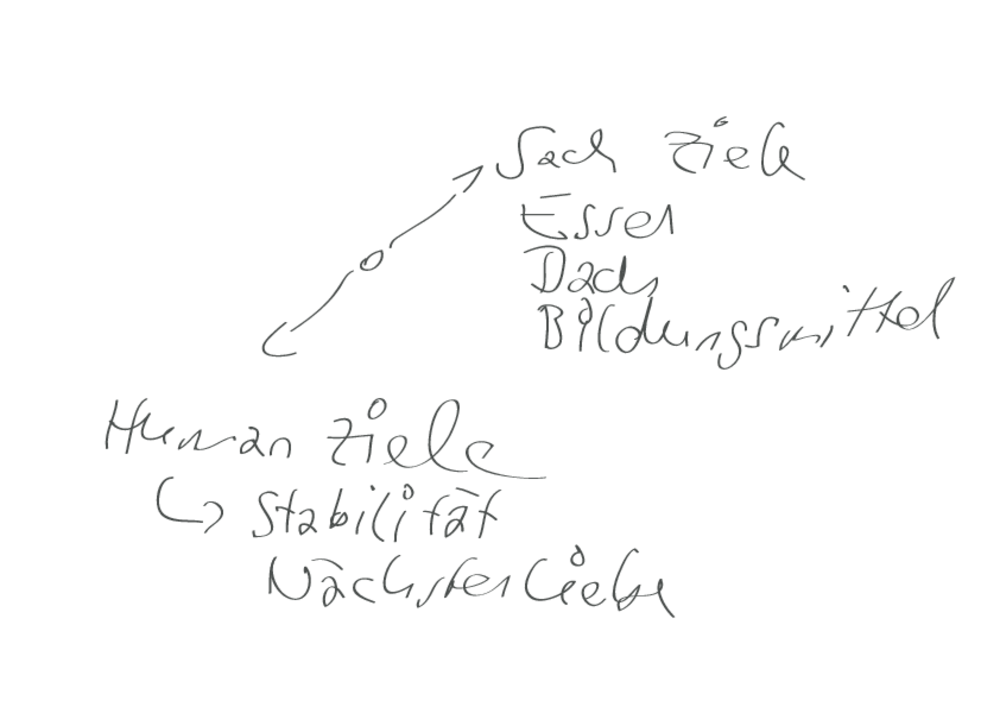 Sach Ziele
Essen
Dach
Bildungsmittel
Human Ziele
Stabilität
Nächstenliebe